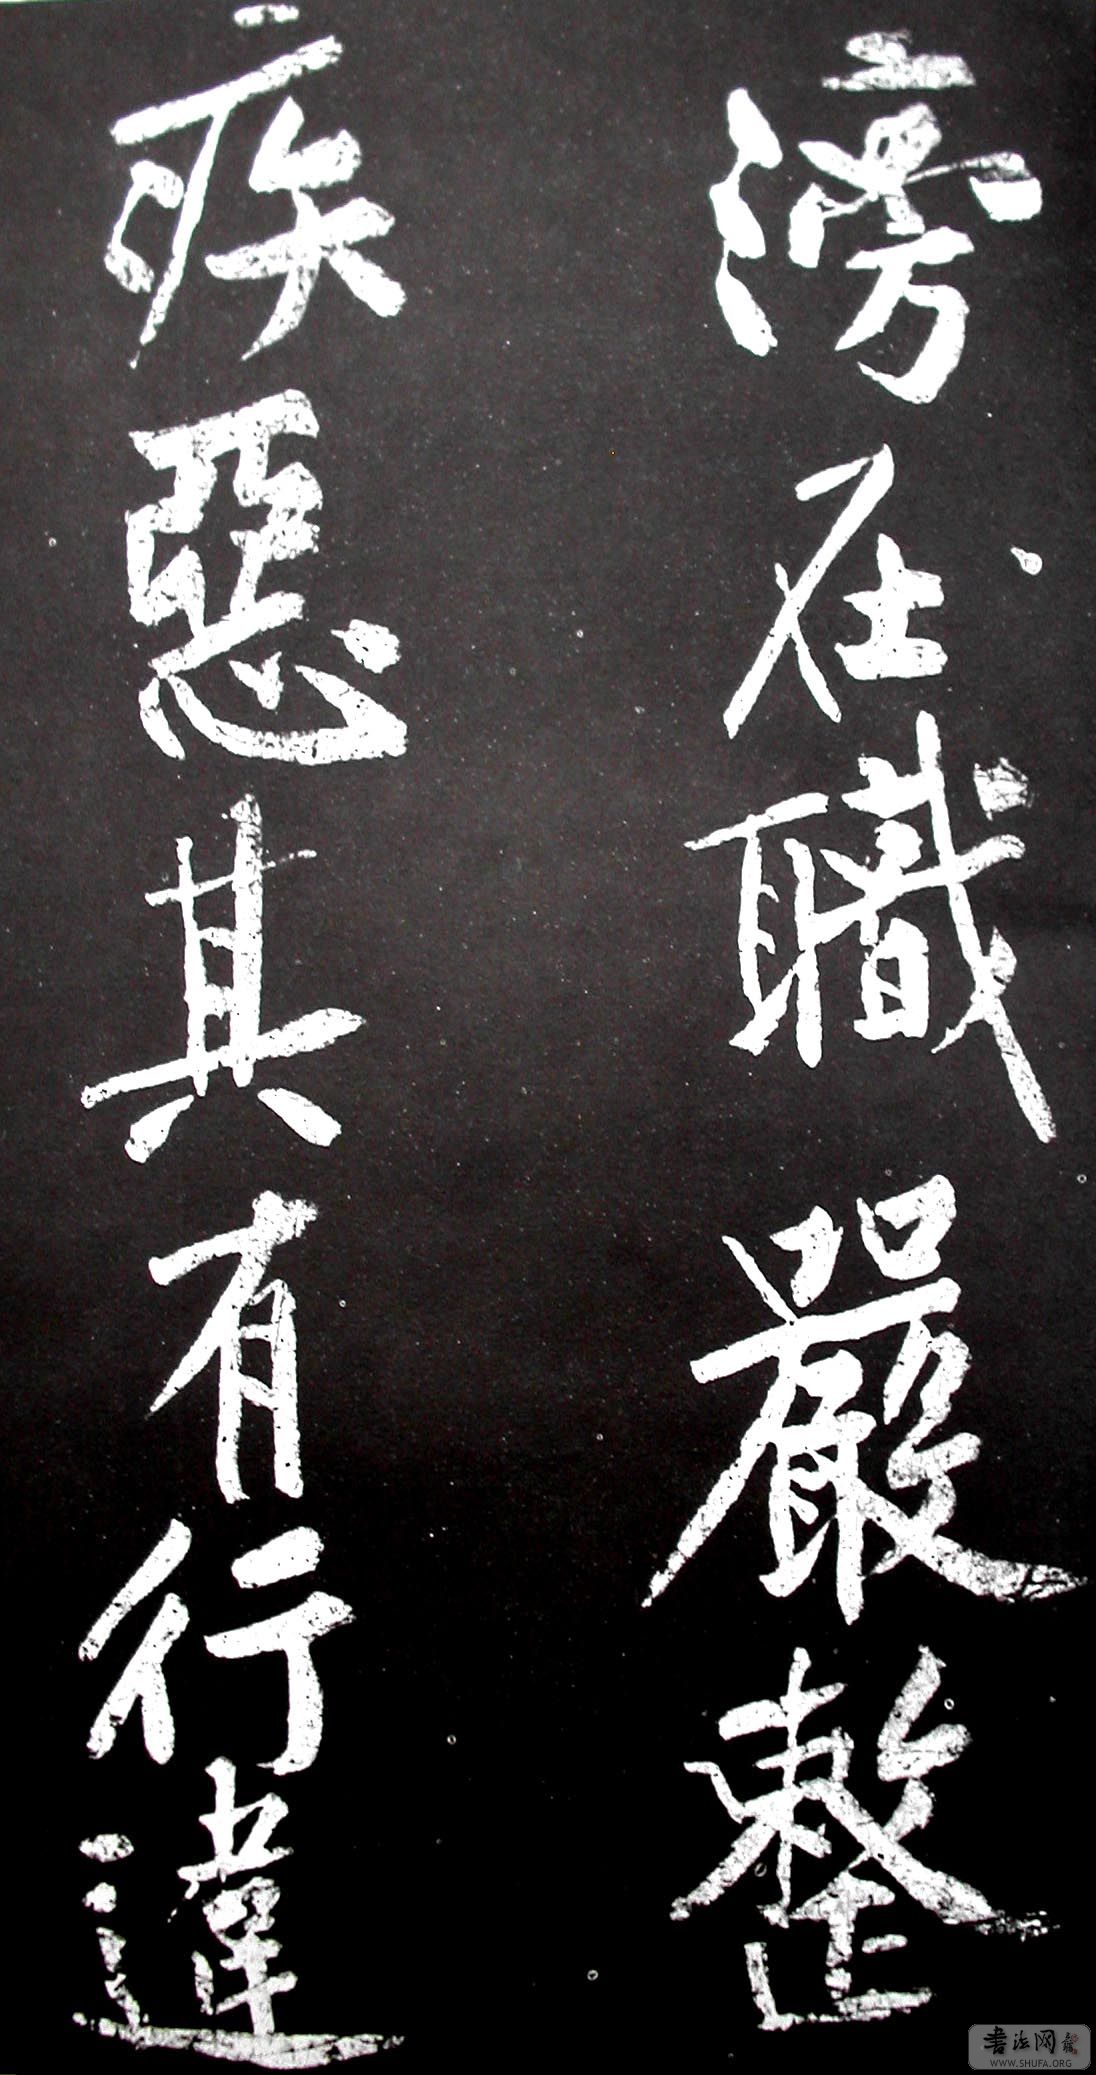 滂在職嚴整
疾惡其有行違
書法网
WWW.SHUFA.ORG